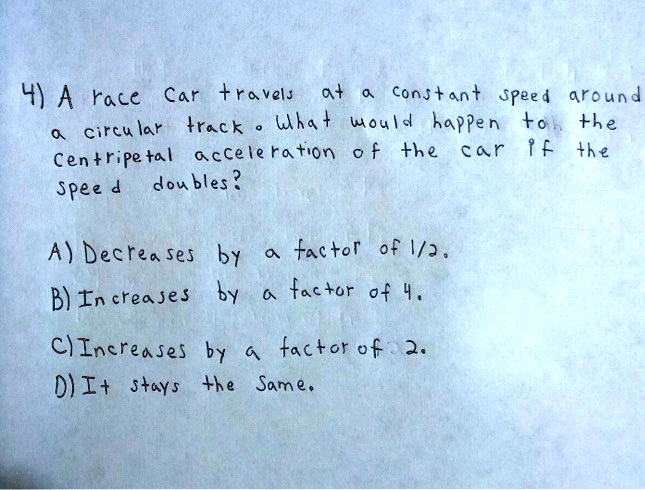 4) A race car travels at a constant speed around
a circular track. What would happen to the
centripetal acceleration of the car if the
speed doubles?
A) Decreases by a factor of 1/2.
B) Increases by a factor of 4.
C) Increases by a factor of 2.
D) It stays the same.